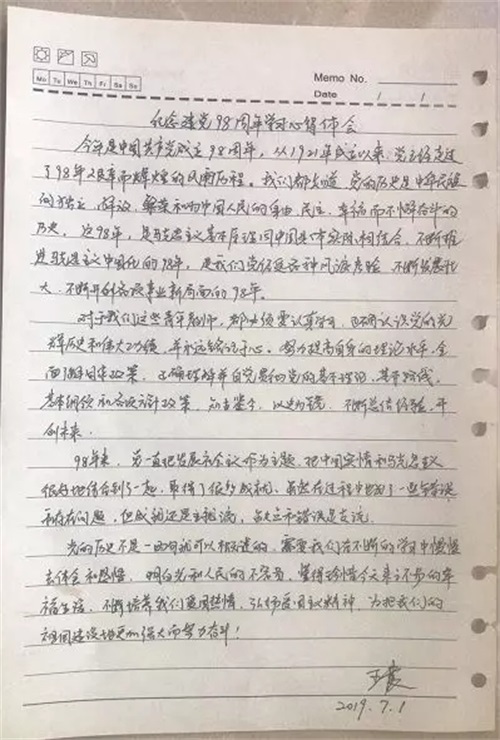 Mo Tu We Th Fr Sa Su
Memo No.
Date / /
纪念建党98周年学习心得体会
今年是中国共产党成立98周年，从1921年成立以来，党已经走过
了98年艰辛而辉煌的风雨历程。我们都知道，党的历史是中华民族
的独立、解放、繁荣和为中国人民的自由、民主、幸福而不懈奋斗的
历史。这98年，是马克思主义基本原理同中国具体实际相结合、不断推
进马克思主义中国化的98年，是我们党经受各种风浪考验、不断发展壮
大、不断开创各项事业新局面的98年。
对于我们这些青年教师，都必须要认真学习，正确认识党的光
辉历史和伟大功绩，并永远铭记于心。努力提高自身的理论水平，全
面了解国家政策，正确理解并自觉贯彻党的基本理论、基本路线、
基本纲领和各项方针政策，知古鉴今，以史为镜，不断总结经验，开
创未来。
98年来，党一直把发展社会主义作为主题，把中国实情和马克思主义
很好地结合到了一起，取得了很多成就。虽然在过程中也犯了一些错误
和存有问题，但成就还是主流，缺点和错误是支流。
党的历史不是一两句就可以概述的，需要我们在不断的学习中慢慢
去体会和感悟，明白党和人民的不容易，懂得珍惜今天来之不易的幸
福生活，不断培养我们爱国热情，弘扬爱国主义精神，为把我们的
祖国建设地更加强大而努力奋斗！
2019.7.1